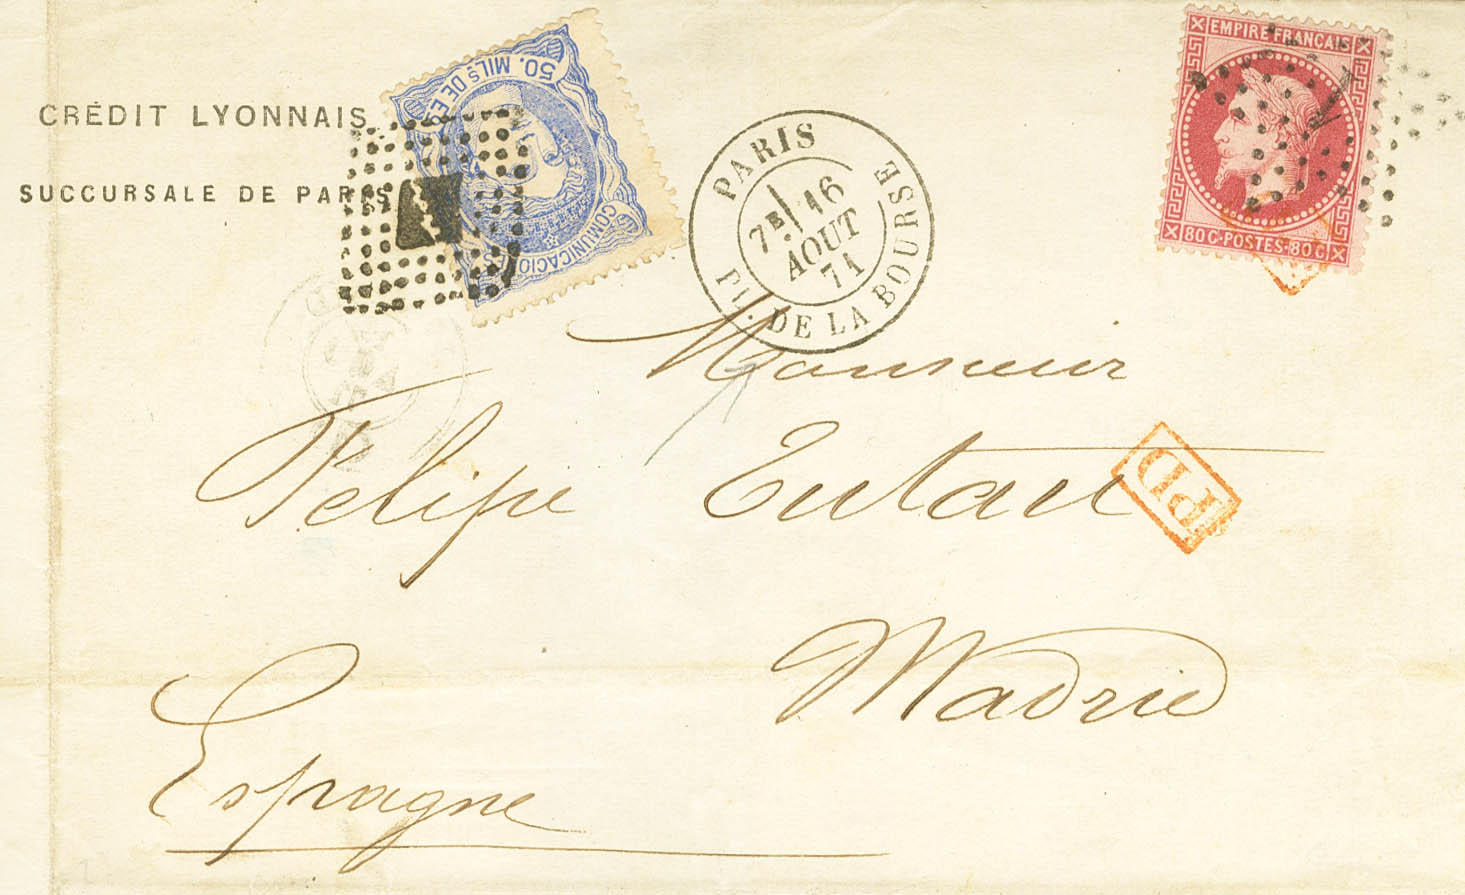 CRÉDIT LYONNAIS
SUCCURSALE DE PARIS
50. MILS DE ES
COMUNICACIO
PARIS
7E 16
AOUT
71
PL. DE LA BOURSE
EMPIRE FRANÇAIS
80C·POSTES·80C
1
Monsieur
Felipe
PD
Madrid
Espagne